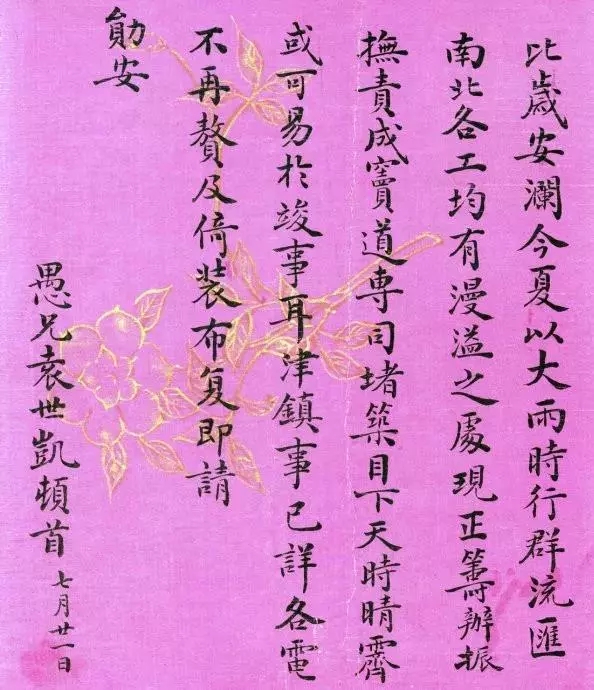 比歲安瀾今夏以大雨時行群流匯
南北各工均有漫溢之處現正籌辦振
撫責成竇道專司堵築目下天時晴霽
或可易於竣事耳津鎮事已詳各電
不再贅及倚裝布复即請
勛安
愚兄袁世凱頓首 七月廿一日